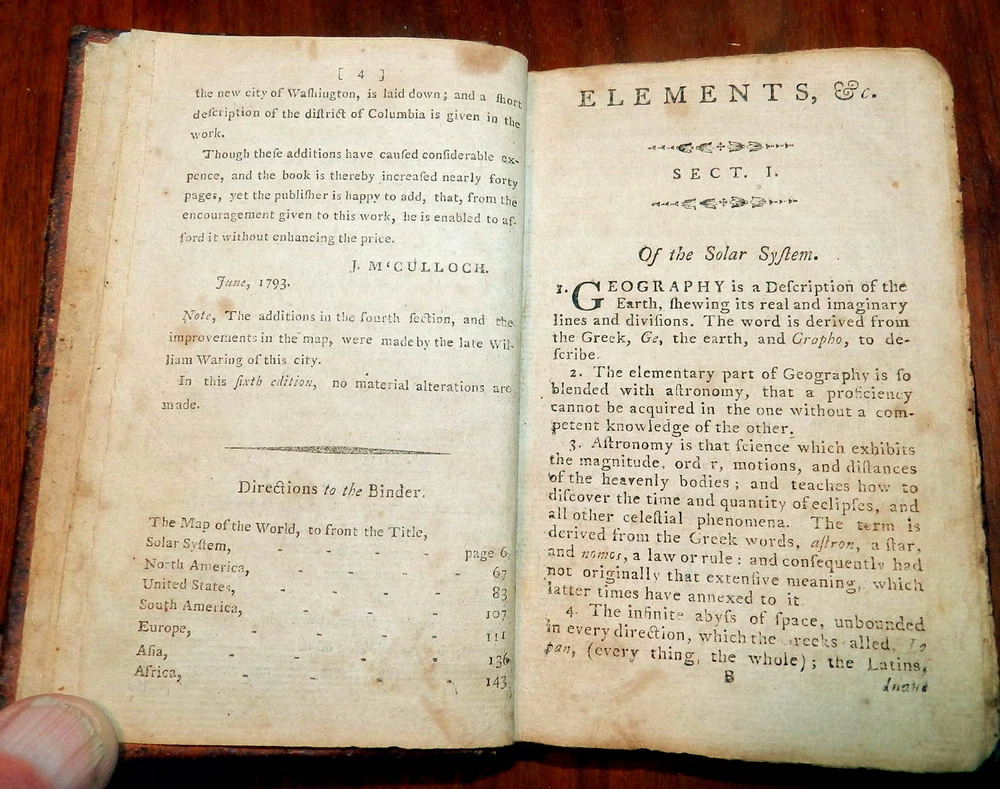 [ 4 ]
the new city of Waſhington, is laid down; and a ſhort
deſcription of the diſtrict of Columbia is given in the
work.
Though theſe additions have cauſed conſiderable ex-
pence, and the book is thereby increaſed nearly forty
pages, yet the publiſher is happy to add, that, from the
encouragement given to this work, he is enabled to af-
ford it without enhancing the price.
J. M‘CULLOCH.
June, 1793.
Note, The additions in the fourth ſection, and the
improvements in the map, were made by the late Wil-
liam Waring of this city.
In this ſixth edition, no material alterations are
made.
Directions to the Binder.
The Map of the World, to front the Title,
Solar Syſtem, - - - - page 6
North America, - - - - 67
United States, - - - - 83
South America, - - - 107
Europe, - - - - 111
Aſia, - - - - 136
Africa, - - - - 143
ELEMENTS, &c.
SECT. I.
Of the Solar Syſtem.
1. GEOGRAPHY is a Deſcription of the
Earth, ſhewing its real and imaginary
lines and diviſions. The word is derived from
the Greek, Ge, the earth, and Gropho, to de-
ſcribe.
2. The elementary part of Geography is ſo
blended with aſtronomy, that a proficiency
cannot be acquired in the one without a com-
petent knowledge of the other.
3. Aſtronomy is that ſcience which exhibits
the magnitude, ord r, motions, and diſtances
of the heavenly bodies; and teaches how to
diſcover the time and quantity of eclipſes, and
all other celeſtial phenomena. The term is
derived from the Greek words, aſtron, a ſtar,
and nomos, a law or rule: and conſequently had
not originally that extenſive meaning, which
latter times have annexed to it
4. The infinite abyſs of ſpace, unbounded
in every direction, which the reeks alled,
pan, (every thing, the whole); the Latins,
B
Inane